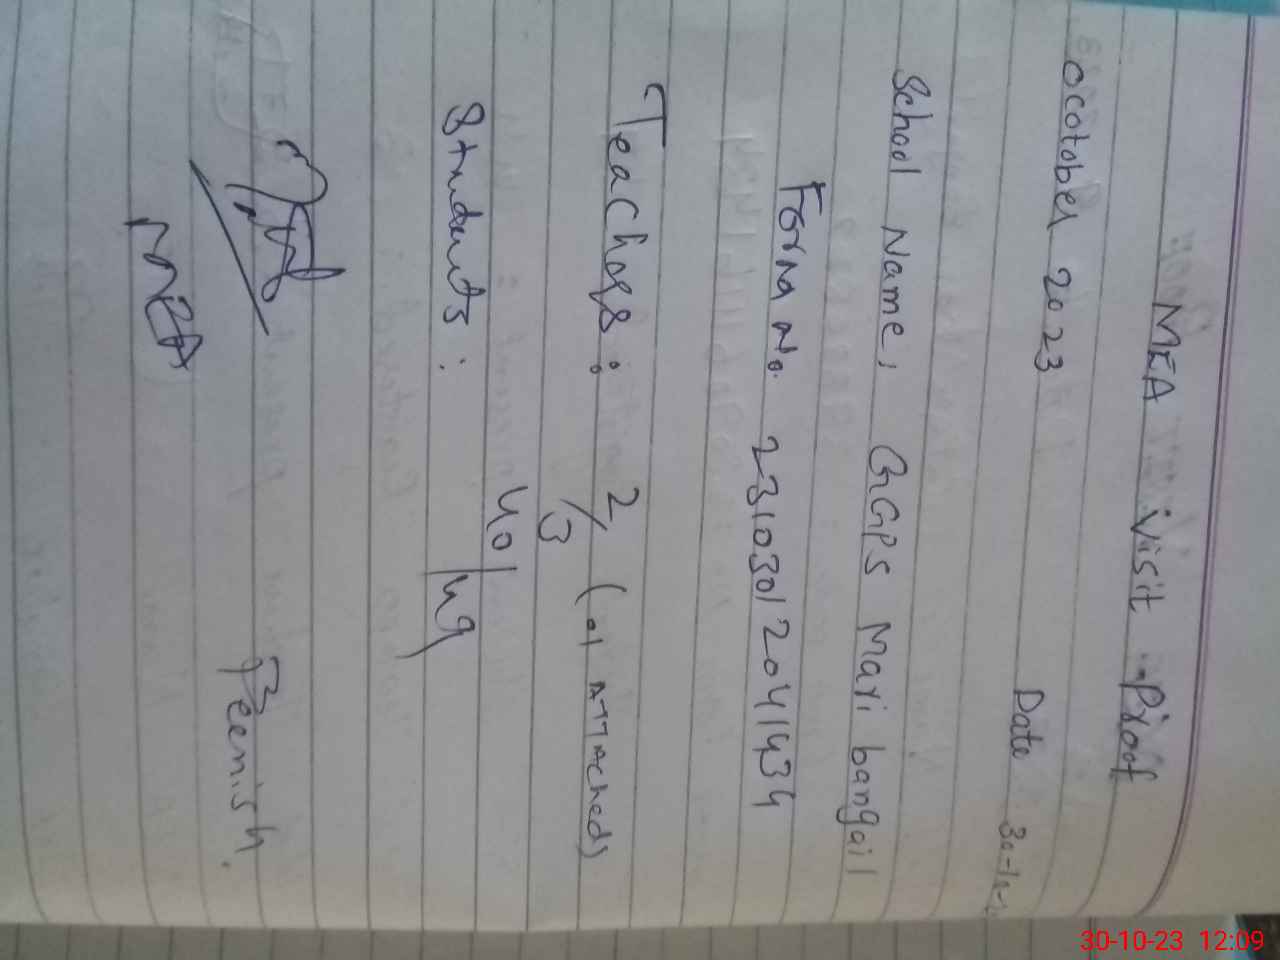 MEA Visit Proof
Ocotober 2023
Date 30-10-
School Name, GGPS Mari bangail
Form No. 23103012041434
Teachers : 2/3 (01 ATTAChed)
Students : 40/49
MEA
Beenish.
30-10-23 12:09